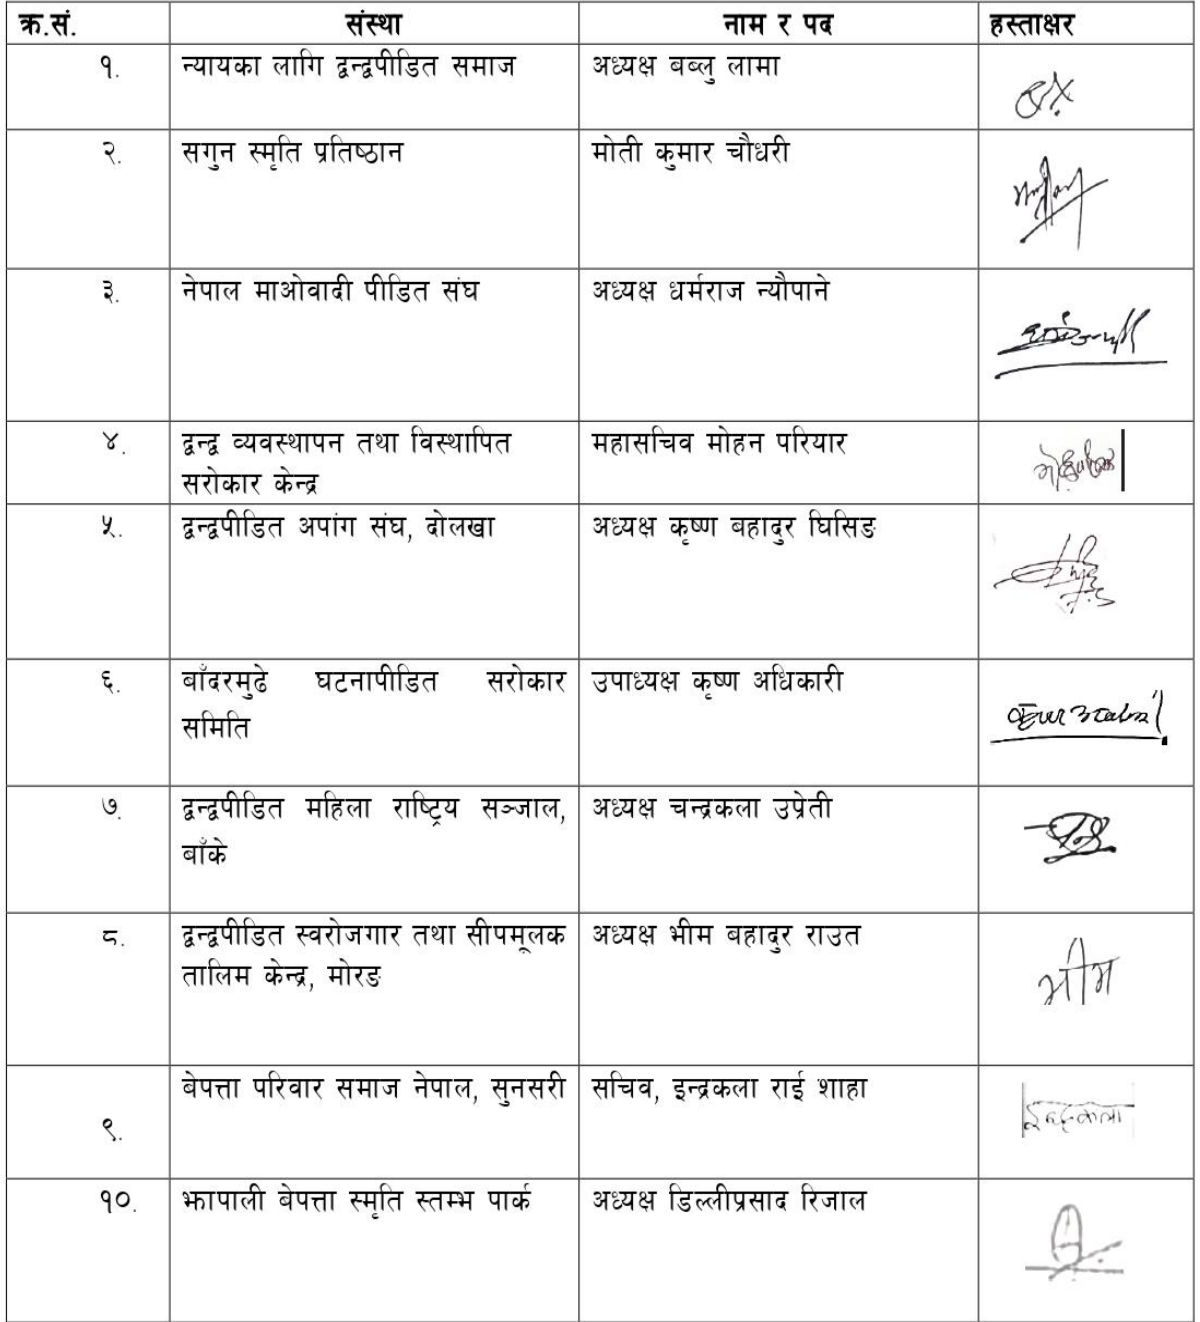 क्र.सं. संस्था नाम र पद हस्ताक्षर
१. न्यायका लागि द्वन्द्वपीडित समाज अध्यक्ष बब्लु लामा
२. सगुन स्मृति प्रतिष्ठान मोती कुमार चौधरी
३. नेपाल माओवादी पीडित संघ अध्यक्ष धर्मराज न्यौपाने
४. द्वन्द्व व्यवस्थापन तथा विस्थापित महासचिव मोहन परियार
सरोकार केन्द्र
५. द्वन्द्वपीडित अपांग संघ, दोलखा अध्यक्ष कृष्ण बहादुर घिसिङ
६. बाँदरमुढे घटनापीडित सरोकार उपाध्यक्ष कृष्ण अधिकारी
समिति
७. द्वन्द्वपीडित महिला राष्ट्रिय सञ्जाल, अध्यक्ष चन्द्रकला उप्रेती
बाँके
८. द्वन्द्वपीडित स्वरोजगार तथा सीपमूलक अध्यक्ष भीम बहादुर राउत
तालिम केन्द्र, मोरङ
भीम
बेपत्ता परिवार समाज नेपाल, सुनसरी सचिव, इन्द्रकला राई शाहा
९. इन्द्रकला
१०. झापाली बेपत्ता स्मृति स्तम्भ पार्क अध्यक्ष डिल्लीप्रसाद रिजाल